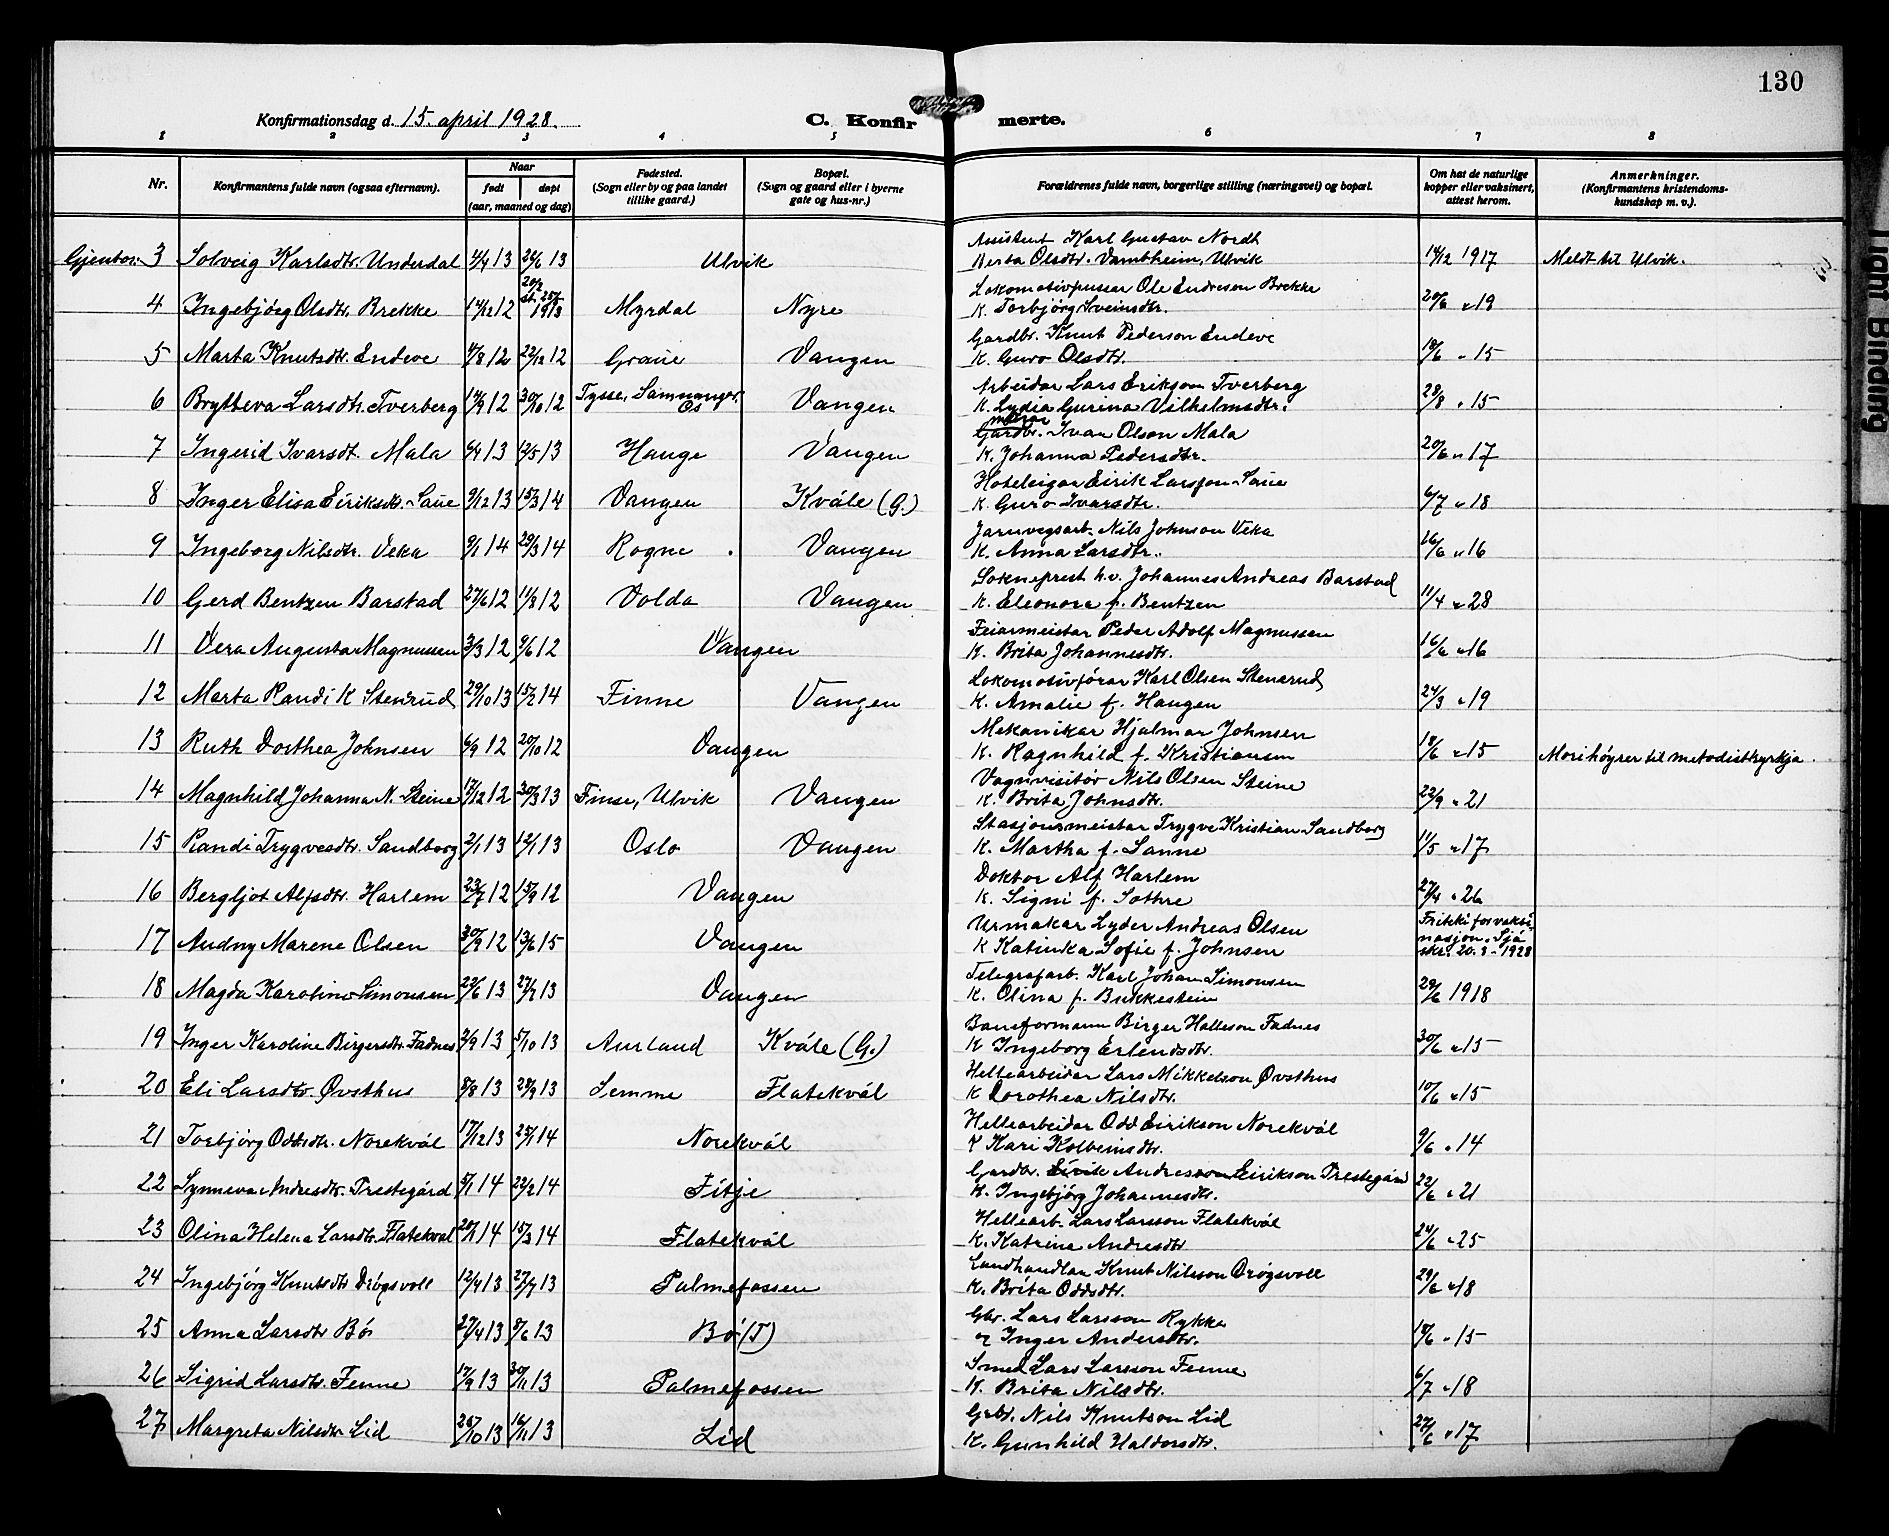 130
Konfirmationsdag d. 15. april 1928.
C. Konfirmerte.
1 2 3 4 5 6 7 8
Nr.
Konfirmantens fulde navn (ogsaa efternavn).
Naar
født døpt
(aar, maaned og dag)
Fødested.
(Sogn eller by og paa landet
tillike gaard.)
Bopæl.
(Sogn og gaard eller i byerne
gate og hus-nr.)
Forældrenes fulde navn, borgerlige stilling (næringsvei) og bopæl.
Om hat de naturlige
kopper eller vaksinert,
attest herom.
Anmerkninger.
(Konfirmantens kristendoms-
kundskap m. v.).
Gjentor 3 Solveig Karlsdtr. Underdal 13 13 Ulvik
Assistent Karl Gustav Nordt
Berta Olsdtr. Vambheim, Ulvik 14/12 1917 Meldt til Ulvik.
4 Ingebjørg Olsdtr. Brekke 14/12 12 1913 Myrdal Nyre
Lokomotivpussar Ole Endreson Brekke
K. Torbjørg Sveinsdtr. 20/6 " 19
5 Marta Knutsdtr. Endeve 4/8 12 22/12 12 Graue Vangen
Gardbr. Knut Pederson Endeve
K. Guro Olsdtr. 18/6 " 15
6 Brytteva Larsdtr. Tverberg 14/9 12 30/10 12 Tysse, Samnanger, Os Vangen
Arbeidar Lars Eirikson Tverberg
K. Lydia Gurina Vilhelmsdtr. 28/8 " 15
7 Ingerid Ivarsdt. Mala 4/4 13 12/5 13 Hauge Vangen
Gardbr. Ivar Olson Mala
K. Johanna Pedersdtr. 20/6 " 17
8 Inger Elisa Eiriksdtr. Saue 9/12 13 15/3 14 Vangen Kvåle (G.)
Hoteleigar Eirik Larsson Saue
K. Guro Ivarsdtr. 6/7 " 18
9 Ingeborg Nilsdtr. Veka 9/1 14 29/3 14 Rogne Vangen
Jarnvegsarb. Nils Johnson Veka
K. Anna Larsdtr. 26/6 " 16
10 Gerd Bentzen Barstad 27/6 12 11/8 12 Volda Vangen
Sokneprest h.v. Johannes Andreas Barstad
K. Eleonora f. Bentzen 11/4 " 28
11 Vera Augusta Magnussen 3/3 12 9/6 12 Vangen
Feiarmeistar Peder Adolf Magnussen
K. Brita Johannesdtr. 16/6 " 16
12 Marta Randi K Stenrud 29/10 13 15/2 14 Finne Vangen
Lokomotivførar Karl Olsen Stenerud
K. Amalie f. Haugen 24/3 " 19
13 Ruth Dorthea Johnsen 6/9 12 20/10 12 Vangen
Mekanikar Hjalmar Johnsen
K. Ragnhild f. Kristiansen 18/6 " 15 Mori høyrer til metodistkyrkja.
14 Magnhild Johanna N. Steine 17/12 12 30/3 13 Finse, Ulvik Vangen
Vognvisitør Nils Olsen Steine
K. Brita Johnsdtr. 22/9 " 21
15 Randi Trygvesdtr. Sandborg 2/1 13 12/1 13 Oslo Vangen
Stasjonsmeistar Trygve Kristian Sandborg
K. Martha f. Sanne 11/5 " 17
16 Bergljot Alfsdtr. Harlem 23/7 12 15/9 12 Vangen
Doktor Alf Harlem
K. Signi f. Sothre 27/4 " 26
17 Audny Marene Olsen 30/9 12 13/6 15 Vangen
Urmakar Lyder Andreas Olsen
K Katinka Sofie f. Johnsen
Friteki for vaksi-
nasjon. Sjå
skr. 20.3-1928
18 Magda Karoline Simonsen 22/6 13 27/7 13 Vangen
Telegrafarb. Karl Johan Simonsen
K. Olina f. Bukkestein 29/6 1918
19 Inger Karoline Birgersdtr. Fadnes 2/9 13 5/10 13 Aurland Kvåle (G.)
Baneformann Birger Halleson Fadnes
K Ingeborg Erlendsdtr. 30/6 " 15
20 Eli Larsdtr. Øvsthus 8/8 13 28/9 13 Semme Flatekvål
Hellearbeidar Lars Mikkelson Øvsthus
K Dorothea Nilsdtr. 10/6 " 15
21 Torbjørg Oddsdtr. Norekvål 17/12 13 25/1 14 Norekvål
Hellearbeidar Odd Eirikson Norekvål
K Kari Kolbeinsdtr. 9/6 " 14
22 Synneva Andresdtr. Prestegård 5/1 14 22/2 14 Fitje
Gardbr. Eirik Andresson Eirikson Prestegård
K. Ingebjørg Johannesdtr. 22/6 " 21
23 Olina Helena Larsdtr. Flatekvål 20/1 14 15/3 14 Flatekvål
Hellearb. Lars Larsson Flatekvål
K. Katrina Andresdtr 24/6 " 25
24 Ingebjørg Knutsdtr Drøgsvoll 12/4 13 27/7 13 Palmefossen
Landhandlar Knut Nilsson Drøgsvoll
K. Brita Oddsdtr. 29/6 " 18
25 Anna Larsdtr Bø 27/4 13 8/6 13 Bø (T)
Gbr. Lars Larsson Rykke
Inger Andersdtr. 18/6 " 15
26 Sigrid Larsdtr. Fenne 17/9 13 30/11 13 Palmefossen
Smed Lars Larsson Fenne
K. Brita Nilsdtr. 6/7 " 18
27 Margreta Nilsdtr. Lid 26/10 13 16/11 13 Lid
Gbr. Nils Knutson Lid
K. Gunhild Haldorsdtr. 27/6 " 17
Binding